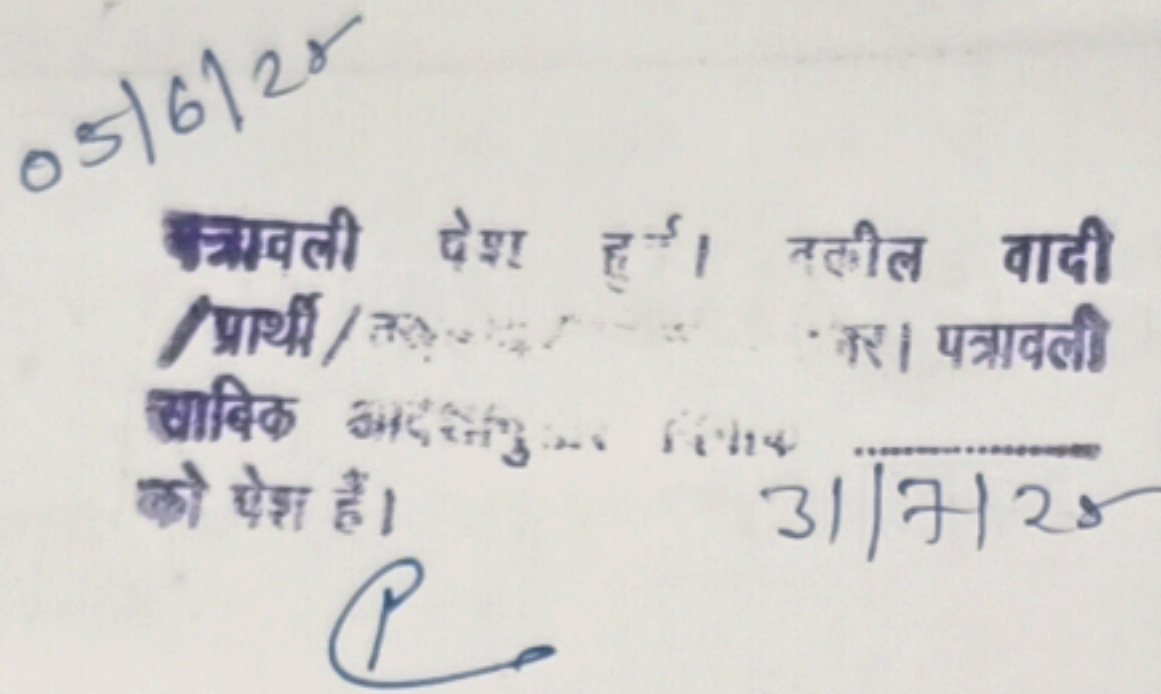 05/6/25
पत्रावली पेश हुई। वकील वादी
/प्रार्थी/ पत्रावली
साबिक आदेशानुसार दिनांक ....................
को पेश हैं।
31/7/25